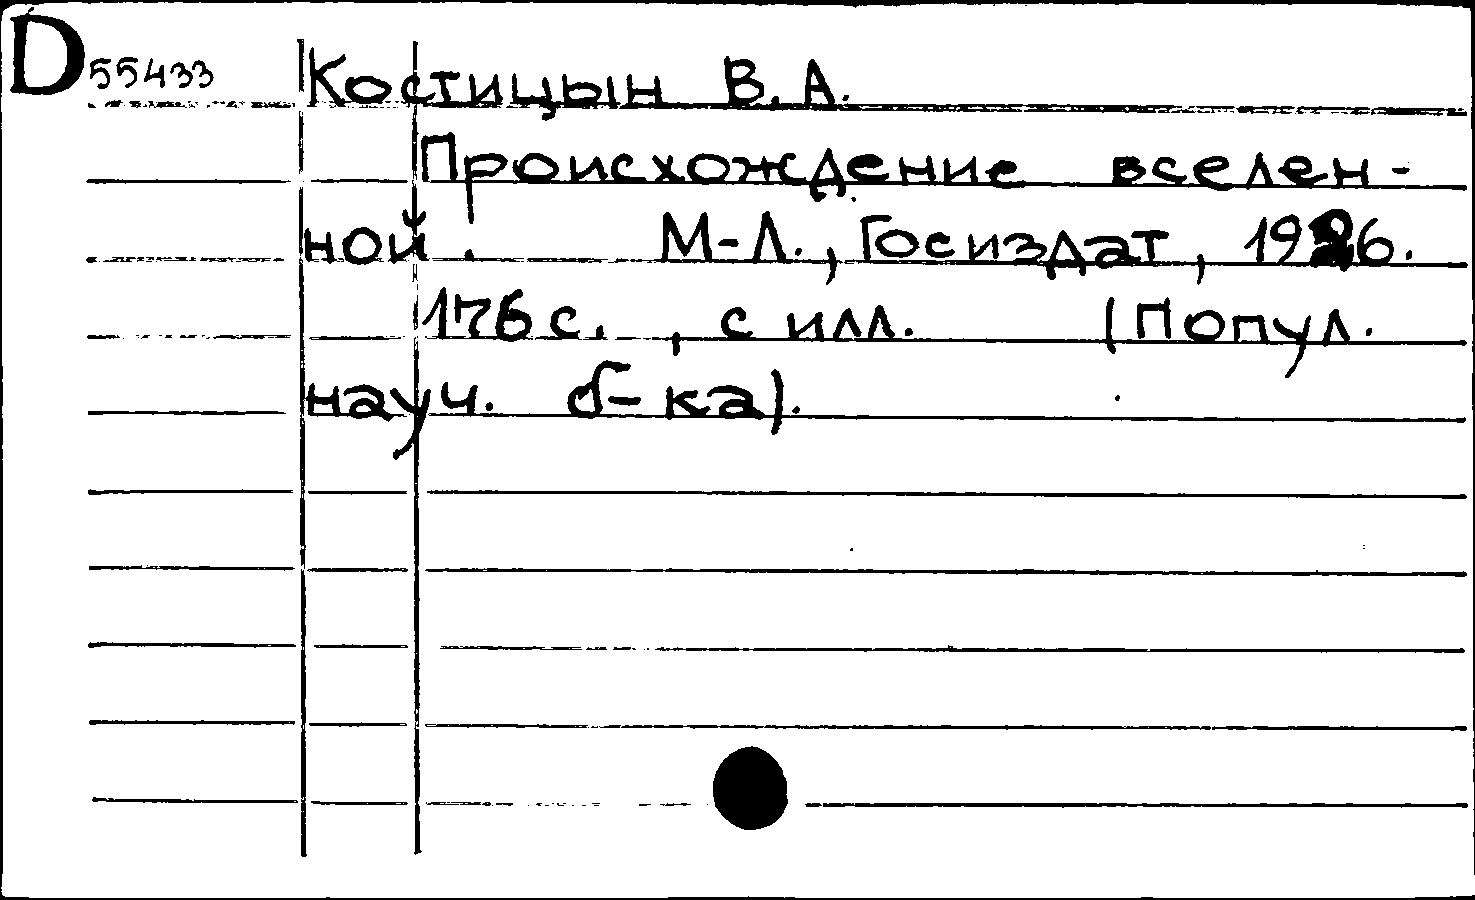 D 55433 Костицын В. А.
Происхождение вселен-
ной. М-Л., Госиздат, 1926.
176 с. , с илл. (Попул.
науч. б-ка).